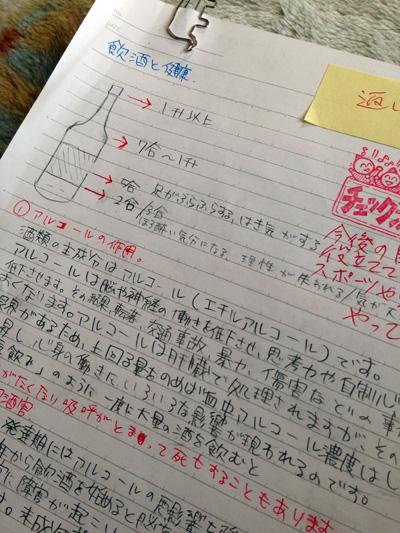 飲酒と健康
返し
1升以上
7合〜1升
5合 足がふらふらする、はき気がする
2合/3合
ほろ酔い気分になる、理性が失われる/気が大
チェック
今後の
役立てて
スポーツや
やって
①アルコールの作用。
酒類の主成分はアルコール(エチルアルコール)です。
アルコールは脳や神経の働きを低下させ、思考力や自制心
低下させます。その結果、転落、交通事故、暴力、傷害などの事
多くなります。アルコールは肝臓で処理されますが、その
限界があるため、上回る量をのめば血中アルコール濃度は
昇し、心身の働きにいろいろな影響が現われるのです。
飲み」のように一度に大量の酒を飲むと
がなくなり呼吸がとまって死もすることもあります
酒害
発達期にはアルコールの悪影響を
から飲酒を始めると脳
に障害が起こ
す。未成年